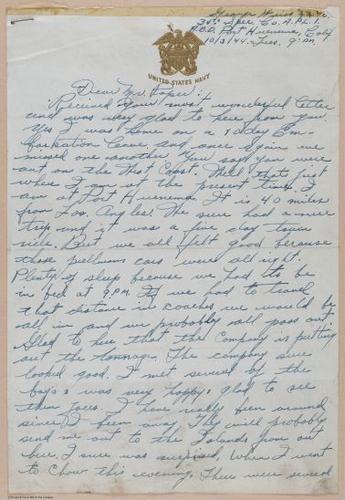 34th Spec. Co. A.P.L. 1.
A.B.D. Port Hueneme, Calif
10/3/44. Tues. 9 P.M.
UNITED STATES NAVY
Dear Mr. Loper:
Received your most wonderful letter
and was very glad to here from you.
Yes I was home on a 10 day Em-
barkation Leave. And once again we
missed one another. You said you were
out on the West Coast. Well thats just
where I am at the present time. I
am at Port Hueneme. It is 40 miles
from Los Angles. We sure had a nice
trip and it was a five day train
ride. But we all felt good because
those pullmans cars were all right.
Plenty of sleep because we had to be
in bed at 9 P.M. If we had to travel
that distance in coaches we would be
all in and we probably all pass out
Glad to hear that the Company is putting
out the tonnage. The company sure
looked good. I met several of the
boy's & was very happy & glad to see
their faces. I have really been around
since I been away. They will probably
send me out to the Islands from out
here. I sure was surprised, When I went
to Chow this evening. There were several